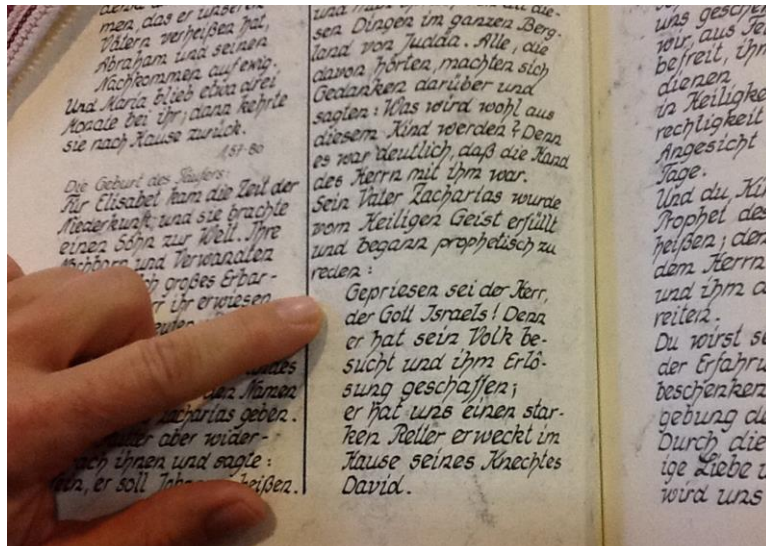 men, das er unseren
Vätern verheißen hat,
Abraham und seinen
Nachkommen auf ewig.
Und Maria blieb etwa drei
Monate bei ihr; dann kehrte
sie nach Hause zurück.
1,57-80
Die Geburt des Täufers:
Für Elisabet kam die Zeit der
Niederkunft, und sie brachte
einen Sohn zur Welt. Ihre
und Verwandten
großes Erbar-
ihr erwiesen
den Namen
Zacharias geben.
aber wider-
ihnen und sagte:
er soll heißen.
sen Dingen im ganzen Berg-
land von Judäa. Alle, die
davon hörten, machten sich
Gedanken darüber und
sagten: Was wird wohl aus
diesem Kind werden? Denn
es war deutlich, daß die Hand
des Herrn mit ihm war.
Sein Vater Zacharias wurde
vom Heiligen Geist erfüllt
und begann prophetisch zu
reden:
Gepriesen sei der Herr,
der Gott Israels! Denn
er hat sein Volk be-
sucht und ihm Erlö-
sung geschaffen;
er hat uns einen star-
ken Retter erweckt im
Hause seines Knechtes
David.
uns
wir, aus
befreit, ihm
dienen
in
Angesicht
Tage.
Und du,
Prophet des
heißen; denn
dem Herrn
und ihm
reiten.
Du wirst
der
beschenken
gebung
Durch die
ige Liebe
wird uns